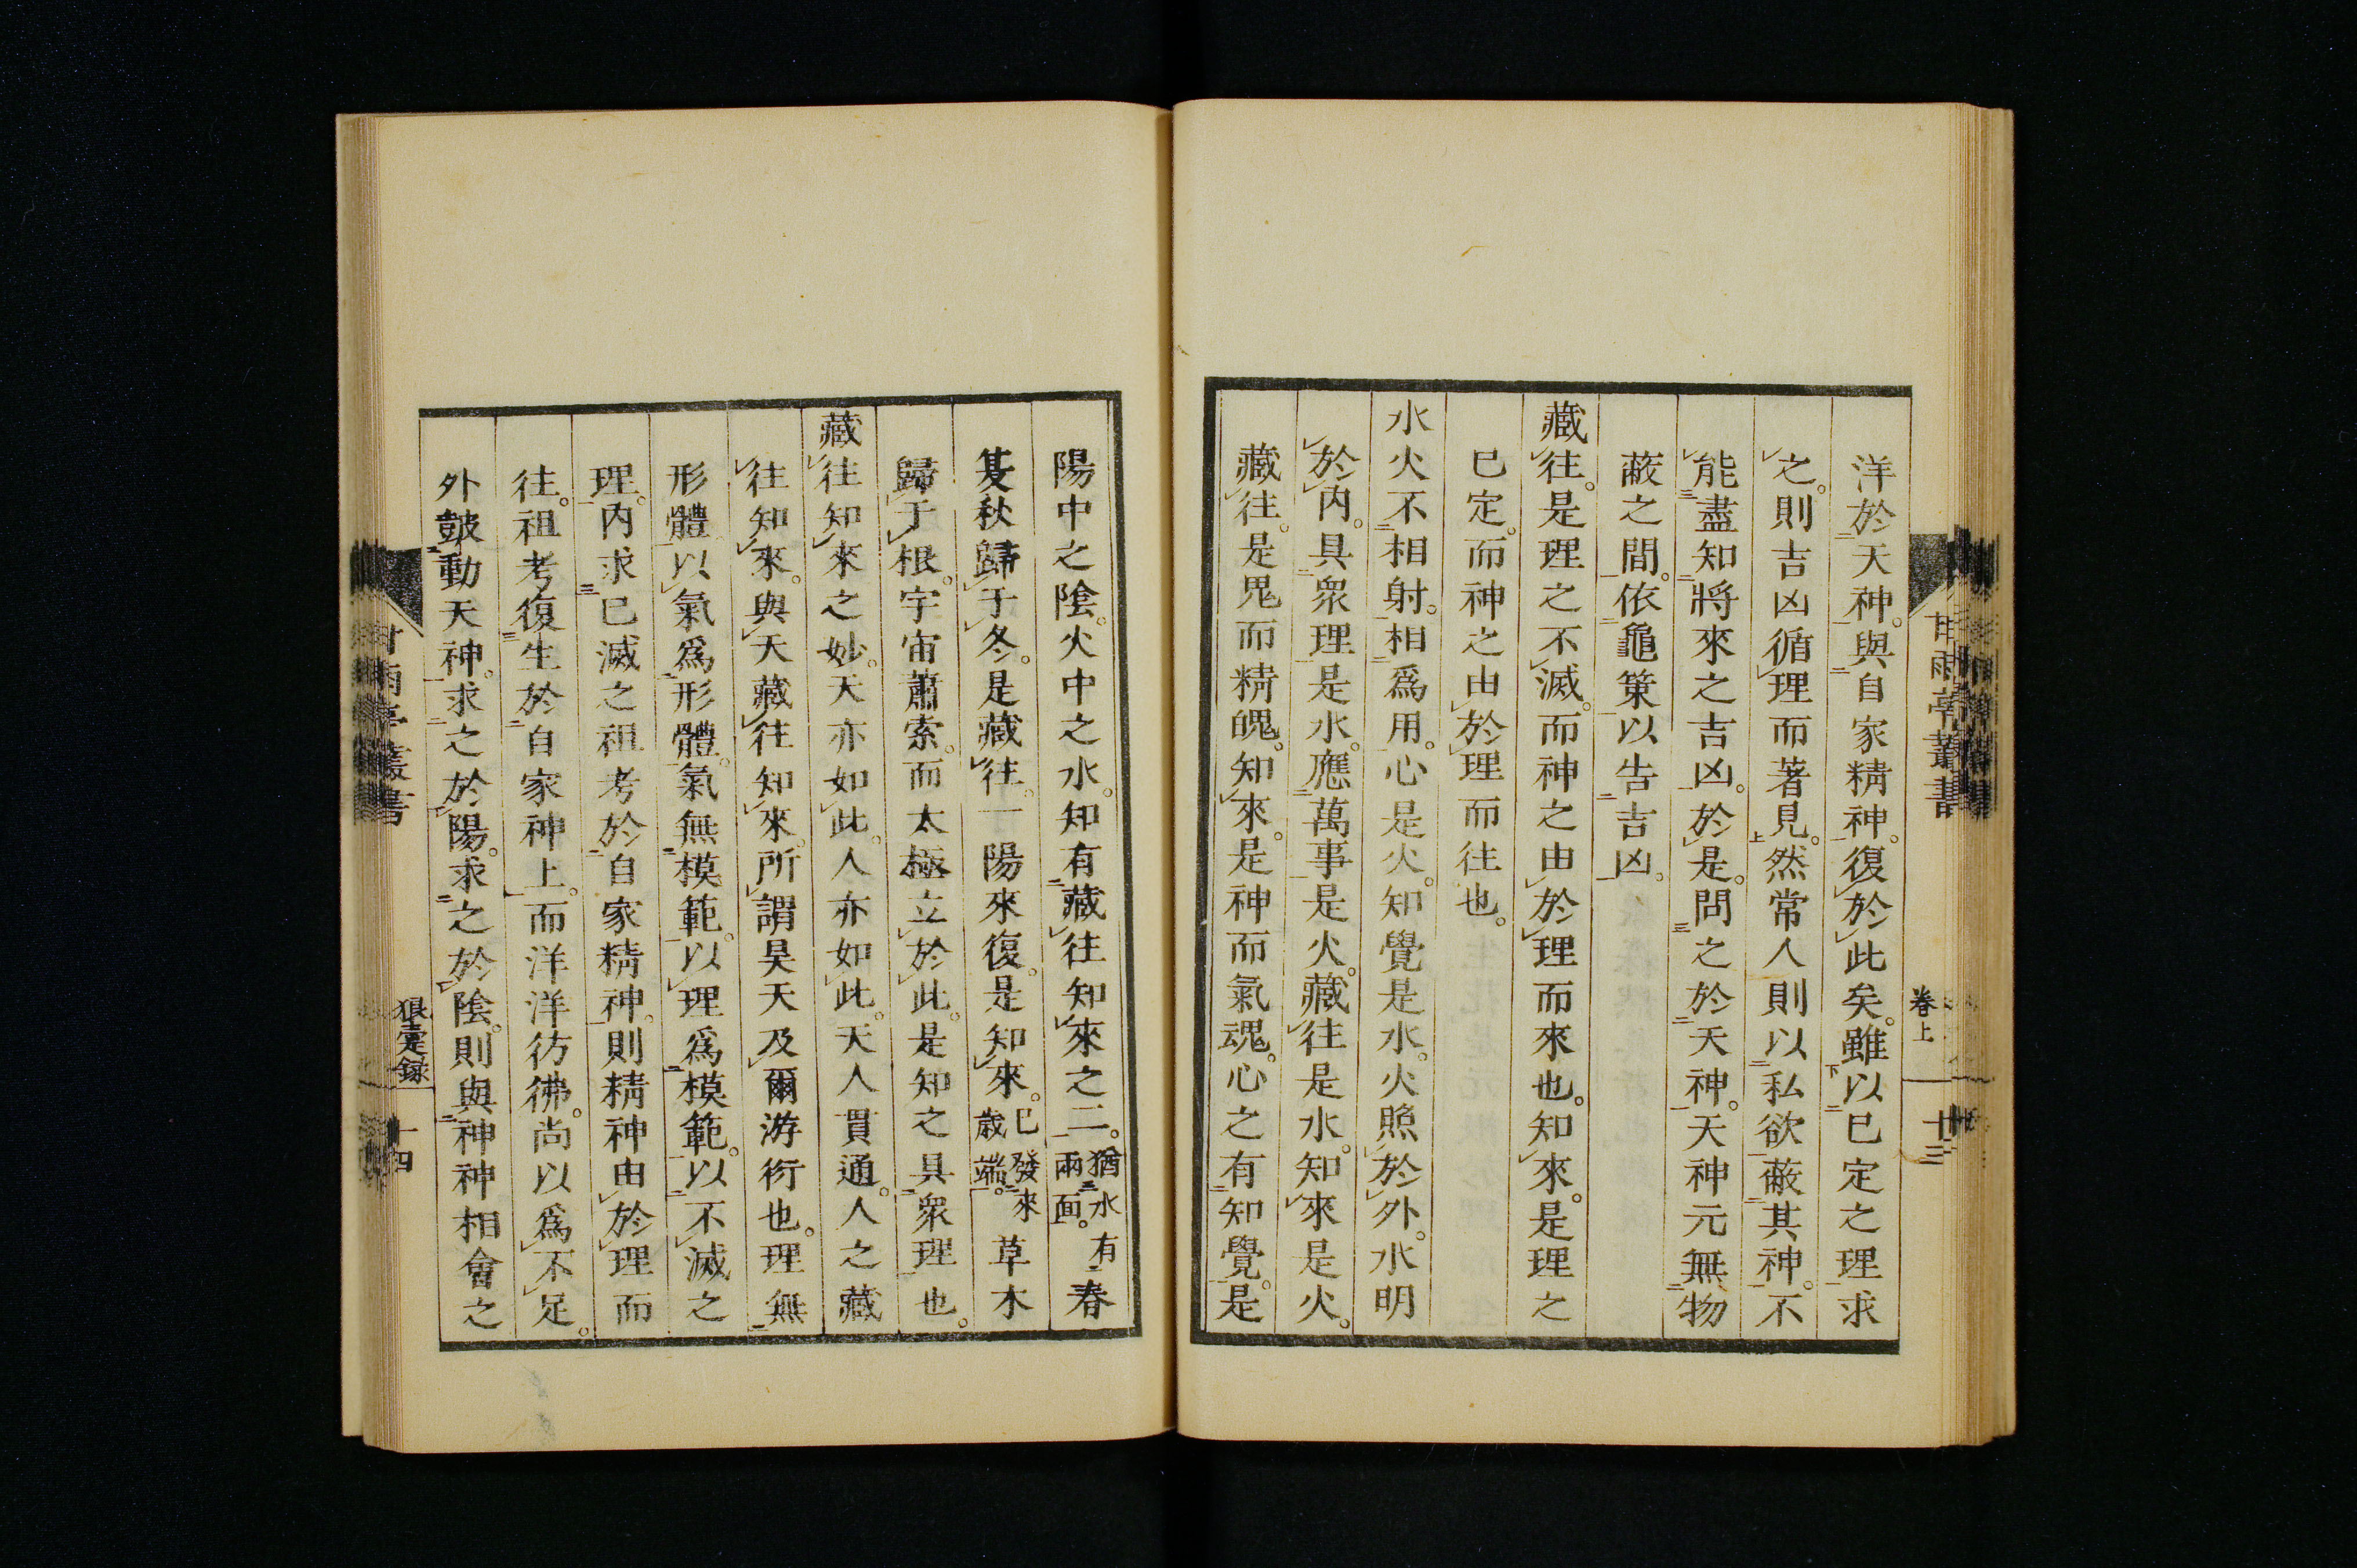 洋於天神。與自家精神。復於此矣。雖以已定之理求
之。則吉凶循理而著見。然常人則以私欲蔽其神。不
能盡知將來之吉凶。於是。問之於天神。天神元無物
蔽之間。依龜筴以告吉凶。
藏往。是理之不滅。而神之由於理而來也。知來。是理之
已定。而神之由於理而往也。
水火不相射。相爲用。心是火。知覺是水。火照於外。水明
於内。具衆理是水。應萬事是火。藏往是水。知來是火。
藏往。是鬼而精魄。知來。是神而氣魂。心之有知覺。是
甘雨亭叢書
卷上
十三
陽中之陰。火中之水。知有藏往知來之二。猶水有兩面。春
夏秋歸于冬。是藏往。一陽來復。是知來。已發來歲端。草木
歸于根。宇宙蕭索。而太極立於此。是知之具衆理也。
藏往知來之妙。天亦如此。人亦如此。天人貫通。人之藏
往知來。與天藏往知來。所謂昊天及爾游衍也。理無
形體。以氣爲形體。氣無模範。以理爲模範。以不滅之
理。内求已滅之祖考於自家精神。則精神由於理而
往。祖考復生於自家神上。而洋洋彷彿。尚以爲不足。
外皷動天神。求之於陽。求之於陰。則與神神相會之
甘雨亭叢書
狼疐録
十四